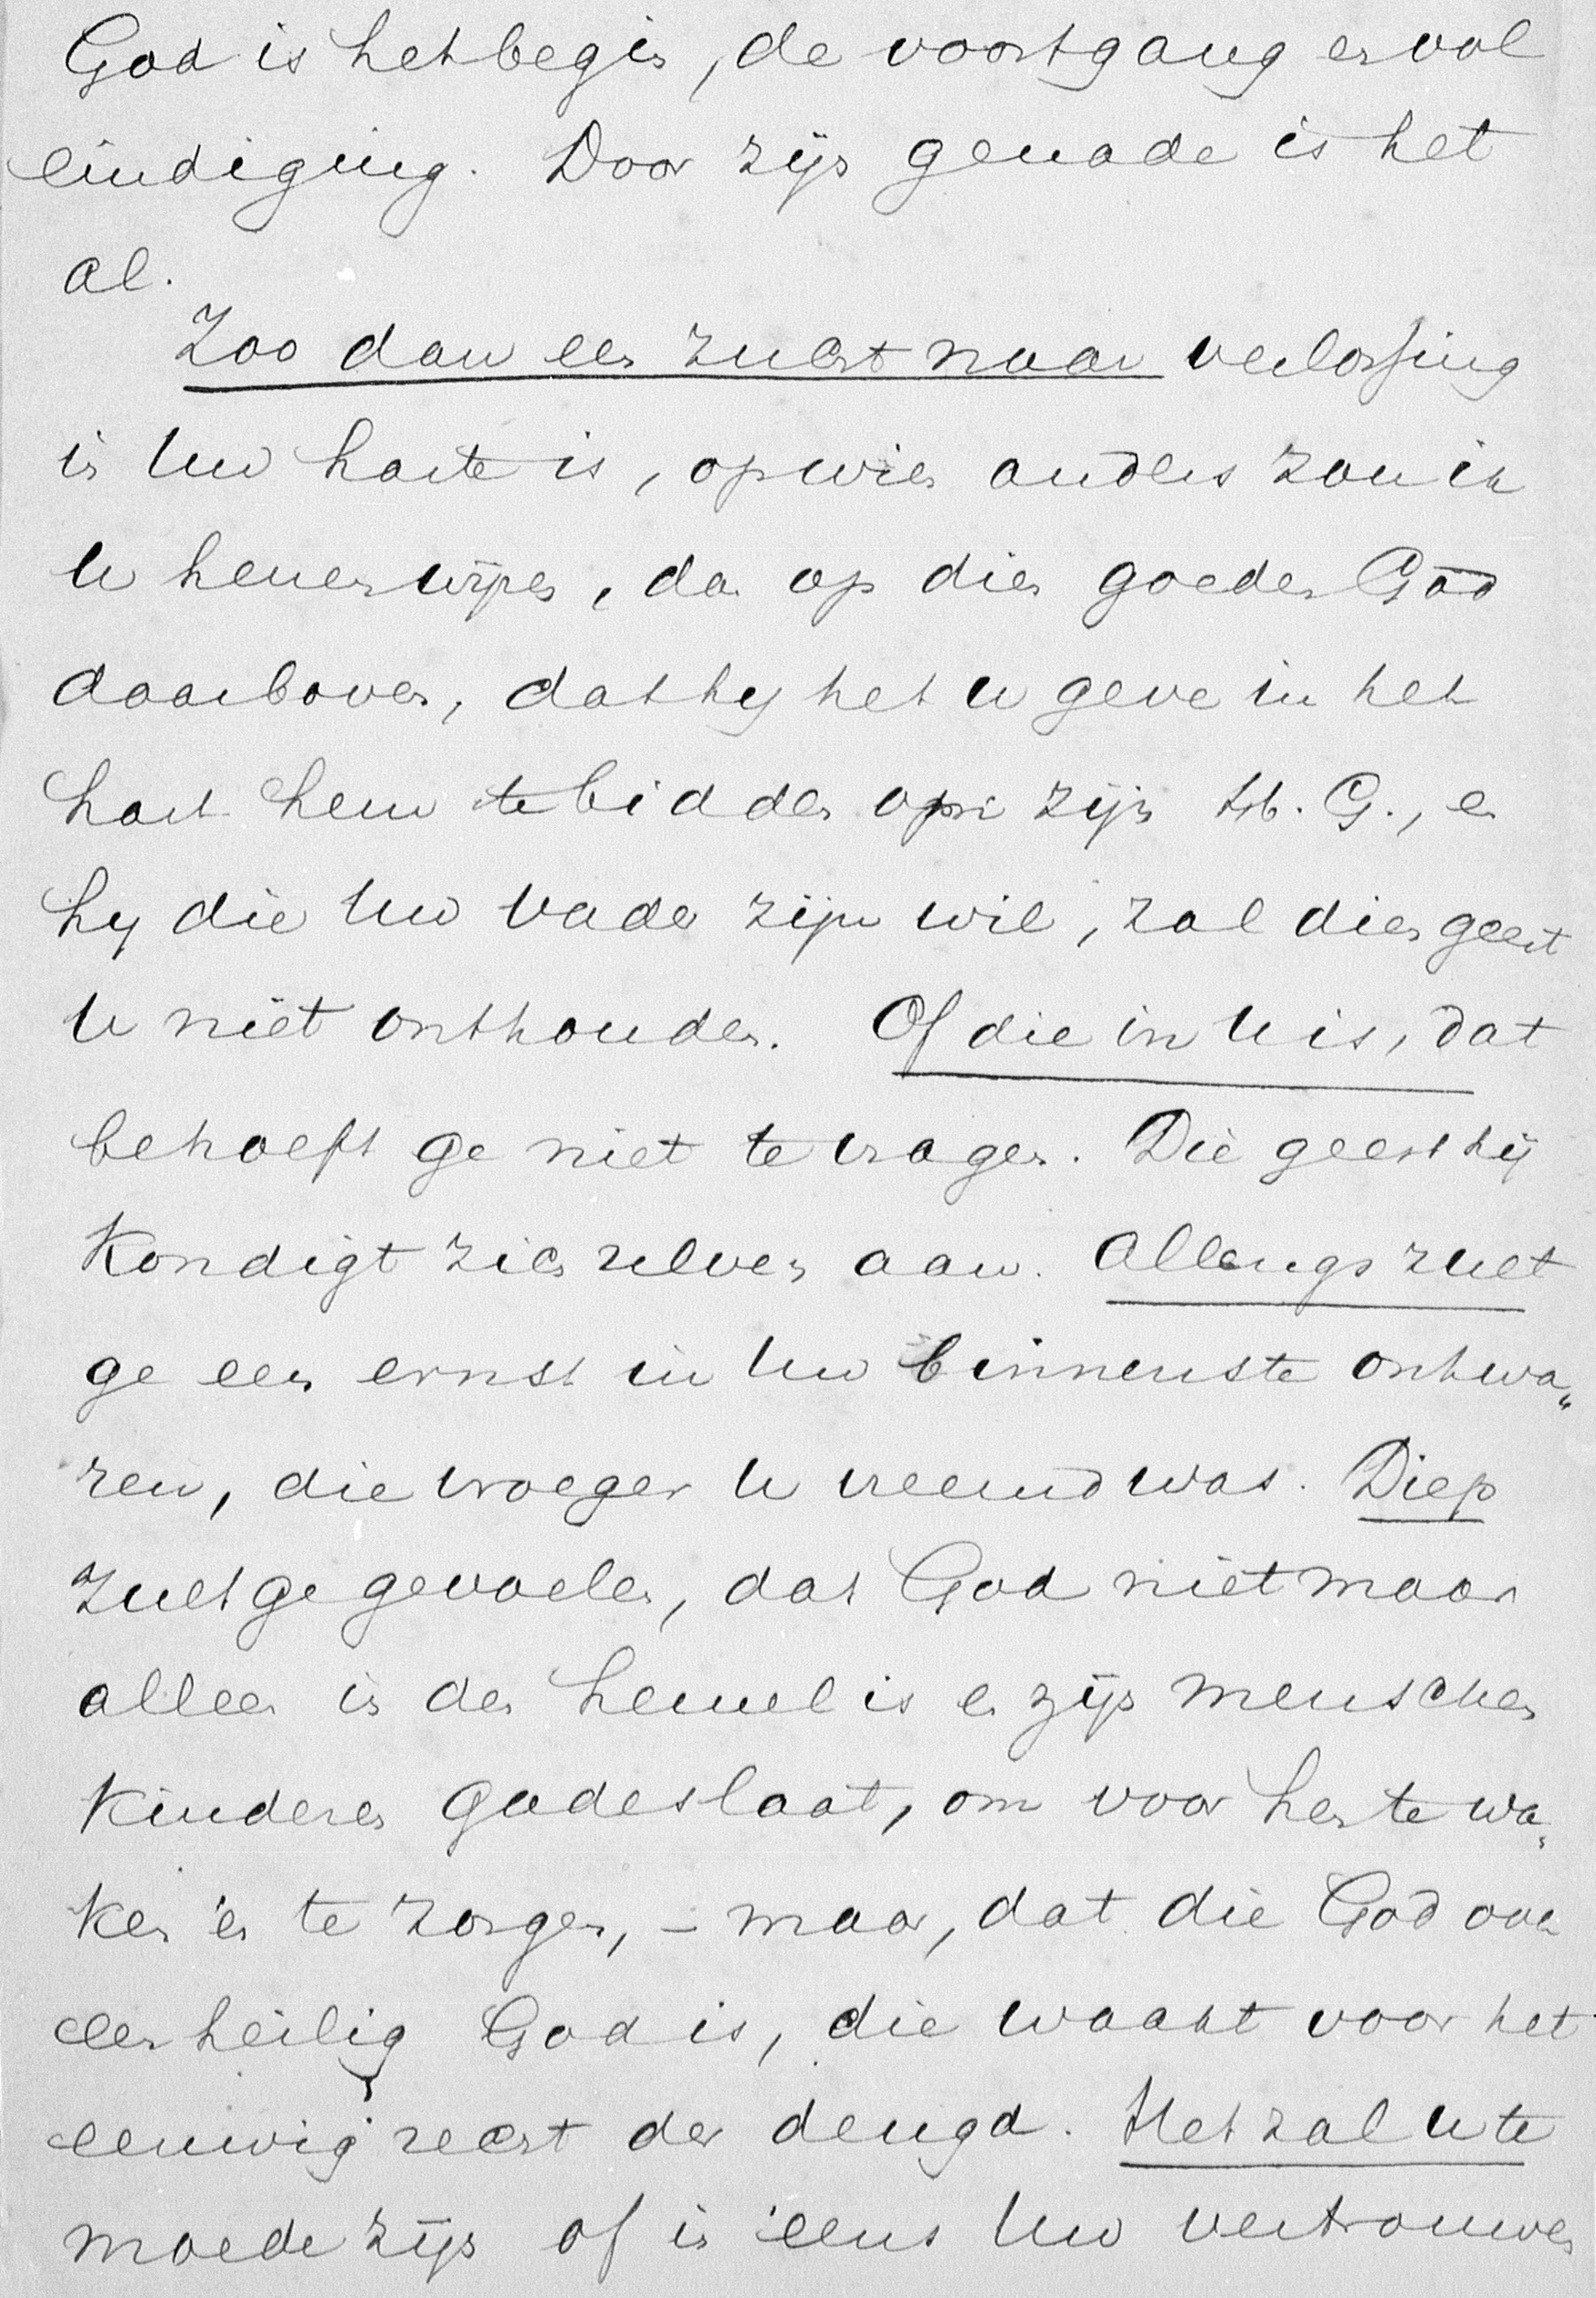 God is het begin, de voortgang en vol
eindiging. Door zijn genade is het
al.
Zoo dan een zucht naar verlossing
in Uw harte is, op wien anders zou ik
U henenwijzen, dan op dien goeden God
daarboven, dat hy het U geve in het
hart hem te bidden om zijn H. G., en
hy die Uw Vader zijn wil, zal dien geest
U niet onthouden. Of die in U is, dat
behoeft ge niet te vragen. Die geest hij
kondigt zich zelven aan. Allengs zult
ge een ernst in Uw binnenste ontwa„
ren, die vroeger U vreemd was. Diep
zult ge gevoelen, dat God niet maar
alleen in den hemel is en zijn menschen
kinderen gadeslaat, om voor hen te wa„
ken en te zorgen, – maar, dat die God ook
een heilig God is, die waakt voor het
eeuwig recht der deugd. Het zal U te
moede zijn of in eens Uw vertrouwen